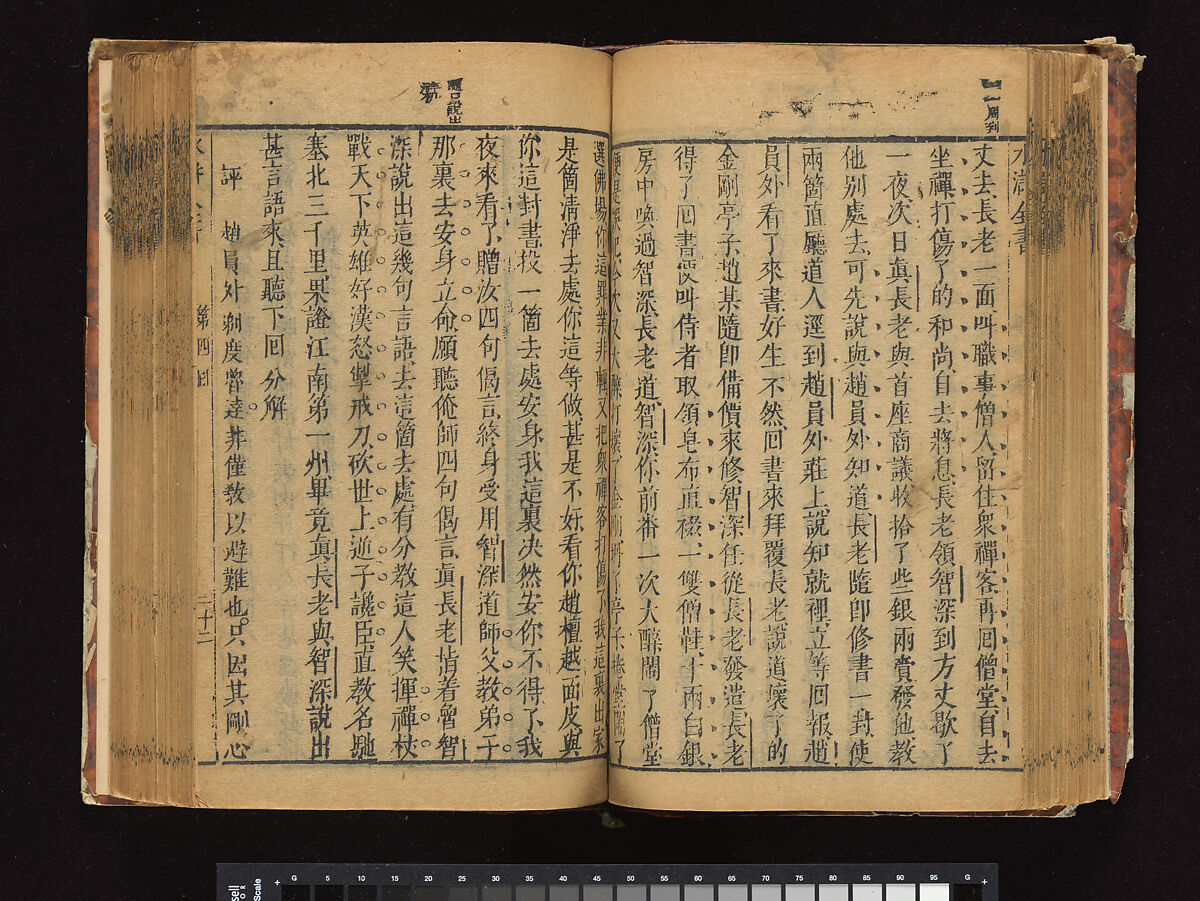 水滸全書
一周到
丈去長老一面叫職事僧人留住衆禪客再囘僧堂自去
坐禪打傷了的和尚自去將息長老領智深到方丈歇了
一夜次日眞長老與首座商議收拾了些銀兩賫發他教
他别處去可先說與趙員外知道長老隨卽修書一封使
兩箇直廳道人逕到趙員外莊上說知就裡立等囘報趙
員外看了來書好生不然囘書來拜覆長老說道壞了的
金剛亭子趙某隨卽備價來修智深任從長老發遣長老
得了囘書便叫侍者取領皂布直裰一雙僧鞋十兩白銀
房中喚過智深長老道智深你前番一次大醉鬧了僧堂
便是誤犯今次又大醉打壞了金剛坍了亭子捲堂鬧了
選佛場你這罪業非輕又把衆禪客打傷了我這裏出家
是箇清淨去處你這等做甚是不好看你趙檀越面皮與
你這封書投一箇去處安身我這裏决然安你不得了我
夜來看了贈汝四句偈言終身受用智深道師父教弟子
那裏去安身立命願聽俺師四句偈言眞長老指着魯智
深說出這幾句言語去這箇去處有分教這人笑揮禪杖
戰天下英雄好漢怒掣戒刀砍世上逆子讒臣直教名馳
塞北三千里果證江南第一州畢竟眞長老與智深說出
甚言語來且聽下囘分解
評 趙員外剃度魯達非僅教以避難也只因其剛心
隨口說出
第四囘
三十二